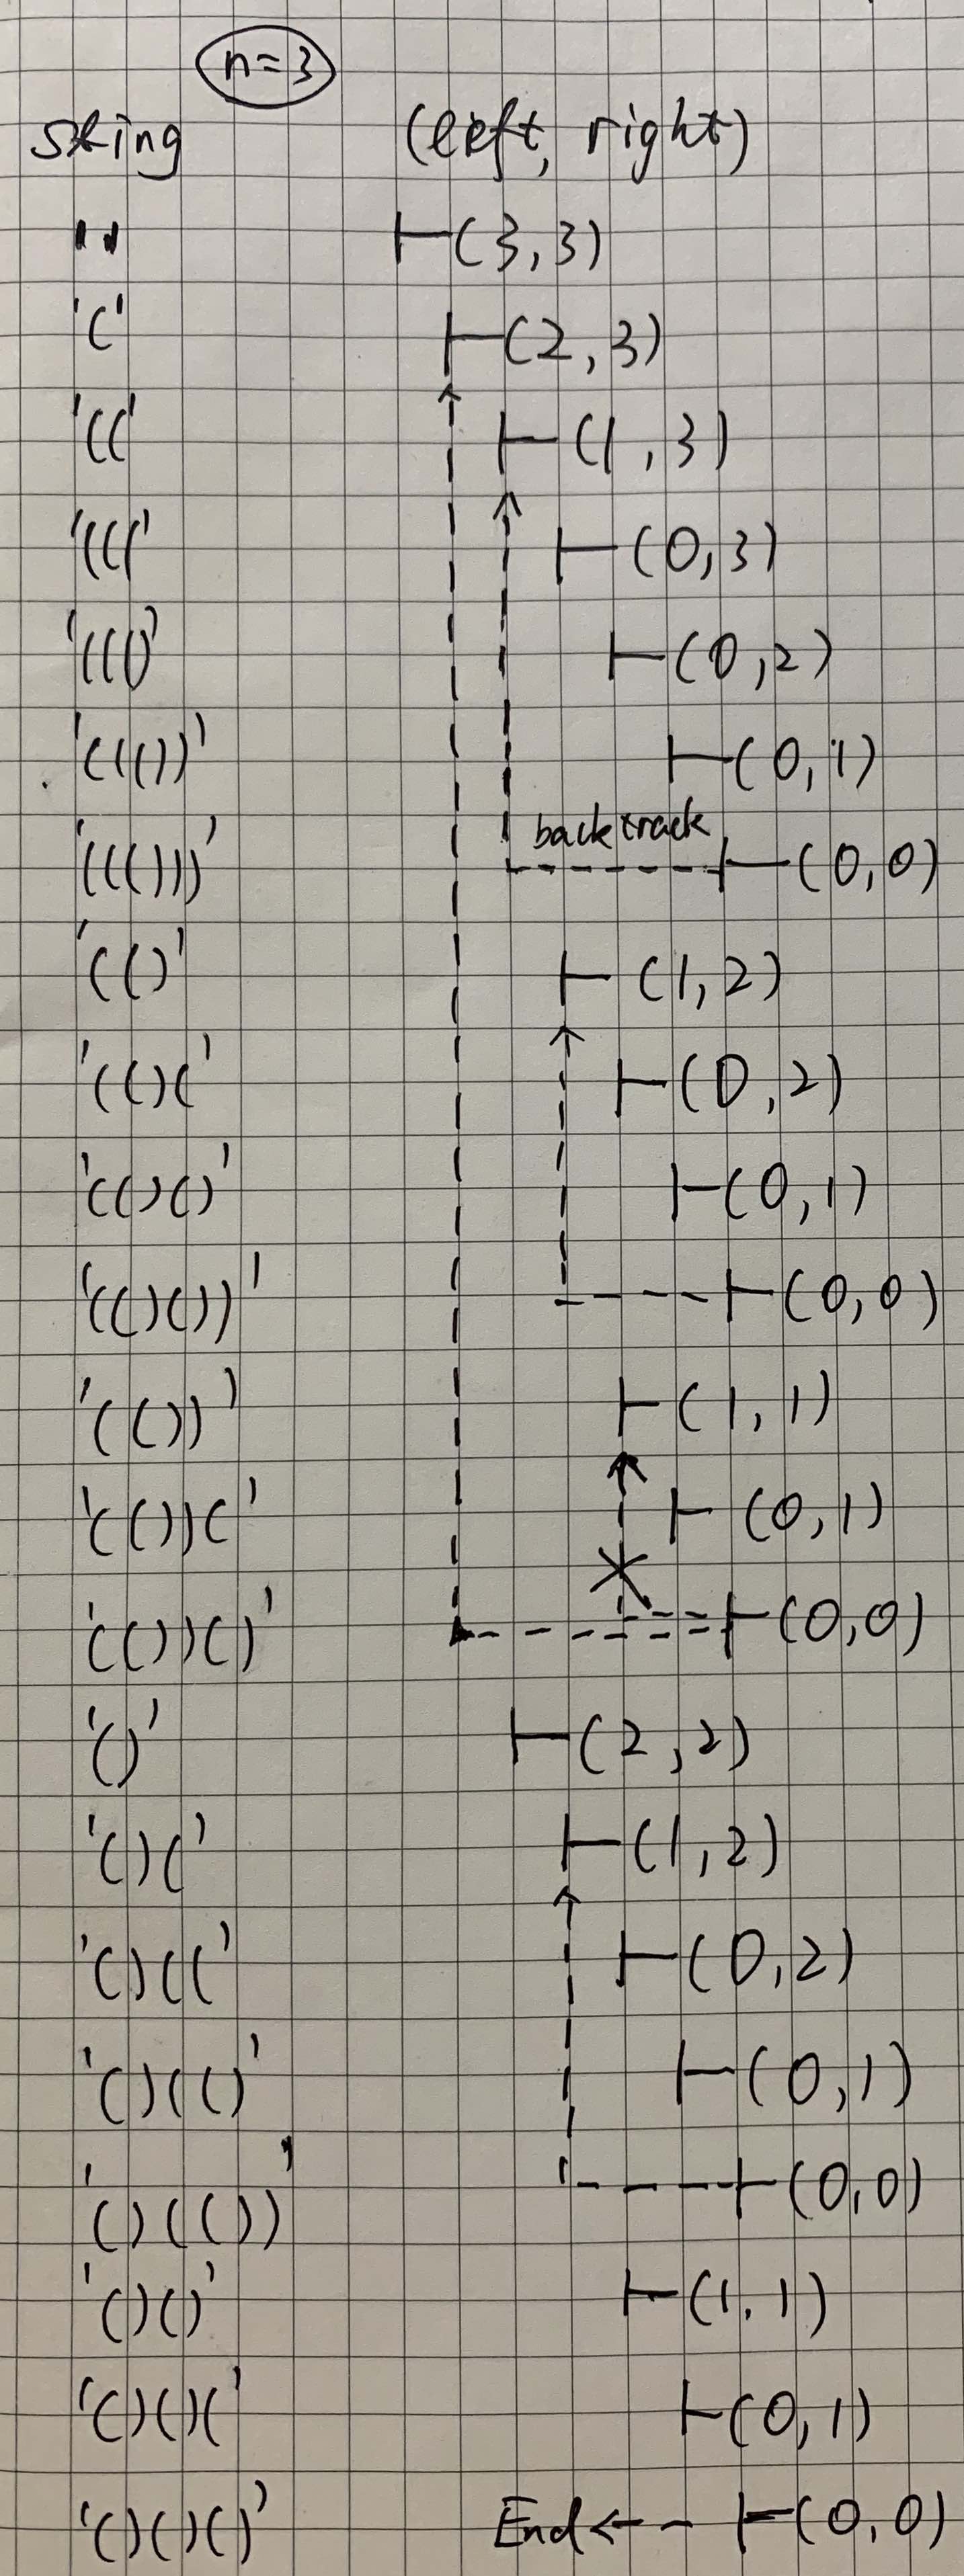 n=3
string (left, right)
'' (3,3)
'(' (2,3)
'((' (1,3)
'(((' (0,3)
'((()' (0,2)
'((())' (0,1)
back track
'((()))' (0,0)
'(()' (1,2)
'(()(' (0,2)
'(()()' (0,1)
'(()())' (0,0)
'(())' (1,1)
'(())(' (0,1)
'(())()' (0,0)
'()' (2,2)
'()(' (1,2)
'()((' (0,2)
'()(()' (0,1)
'()(())' (0,0)
'()()' (1,1)
'()()(' (0,1)
'()()()' End (0,0)